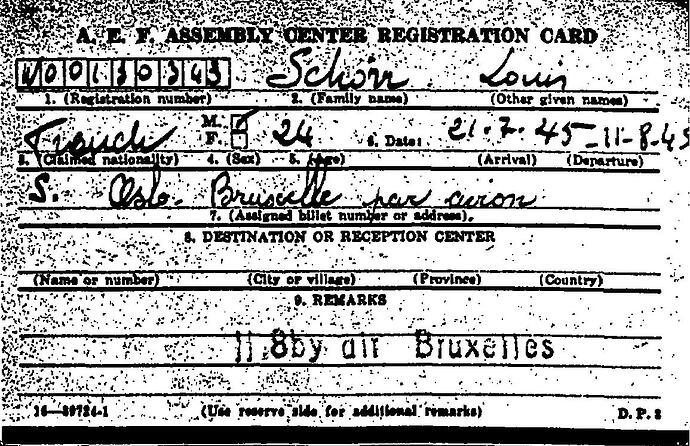 A. E. F. ASSEMBLY CENTER REGISTRATION CARD
W00130343 Schörr Louis
1. (Registration number) 2. (Family name) (Other given names)
French M. F. 24 6. Date: 21.7.45 - 11-8-45
3. (Claimed nationality) 4. (Sex) 5. (Age) (Arrival) (Departure)
S. Oslo- Bruxelle par avion
7. (Assigned billet number or address).
8. DESTINATION OR RECEPTION CENTER
(Name or number) (City or village) (Province) (Country)
9. REMARKS
11.8by air Bruxelles
16—39724-1 (Use reserve side for additional remarks) D.P. 2